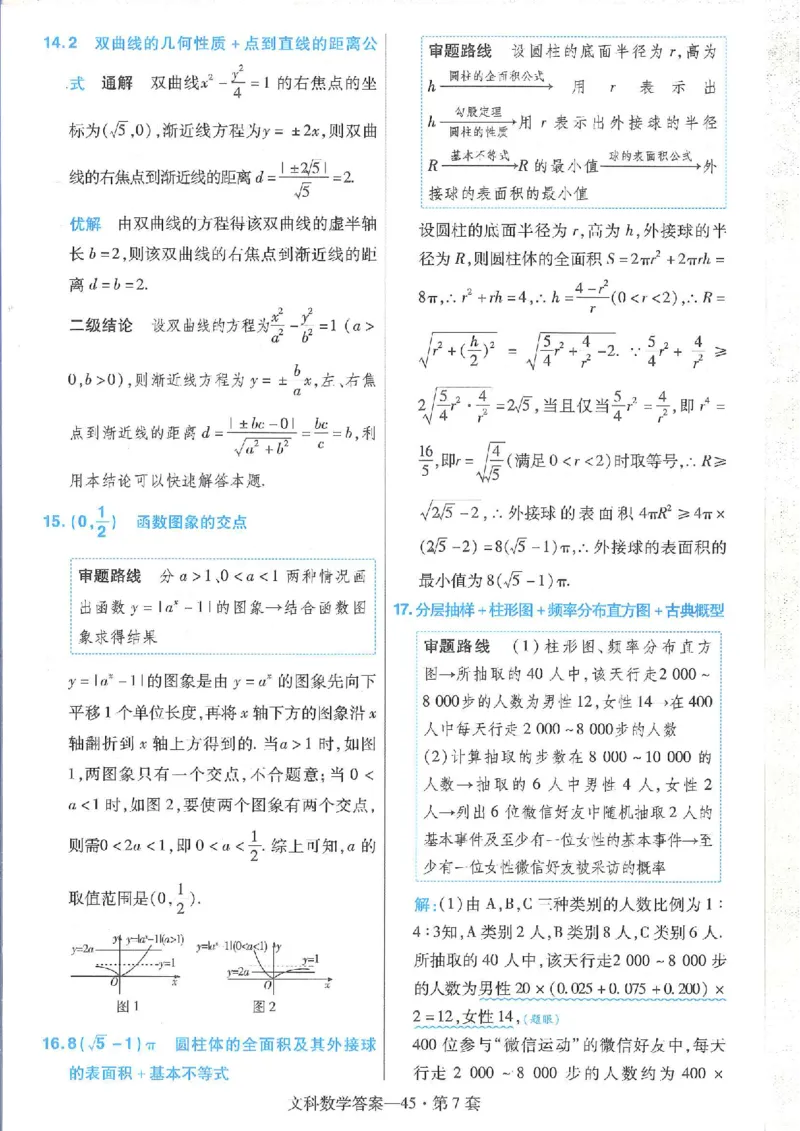 14.2 双曲线的几何性质+点到直线的距离公
式 通解 双曲线x²-y²/4=1 的右焦点的坐
标为(√5,0),渐近线方程为y=±2x,则双曲
线的右焦点到渐近线的距离 d=|±2√5|/√5=2.
优解 由双曲线的方程得该双曲线的虚半轴
长 b=2,则该双曲线的右焦点到渐近线的距
离 d=b=2.
二级结论 设双曲线的方程为x²/a²-y²/b²=1 (a>
0,b>0),则渐近线方程为 y=±b/a x,左、右焦
点到渐近线的距离 d=|±bc-0|/√(a²+b²)=bc/c=b,利
用本结论可以快速解答本题.
15.(0,1/2) 函数图象的交点
审题路线 分 a>1、0<a<1 两种情况画
出函数 y=|aˣ-1|的图象→结合函数图
象求得结果
y=|aˣ-1|的图象是由 y=aˣ 的图象先向下
平移1个单位长度,再将x轴下方的图象沿x
轴翻折到 x 轴上方得到的. 当a>1 时,如图
1,两图象只有一个交点,不合题意;当 0<
a<1时,如图2,要使两个图象有两个交点,
则需0<2a<1,即 0<a<1/2. 综上可知,a 的
取值范围是(0,1/2).
y y=|aˣ-1|(a>1)
y=2a
y=1
O x
图1
y=|aˣ-1|(0<a<1) y
y=1
y=2a
O x
图2
16.8(√5-1)π 圆柱体的全面积及其外接球
的表面积+基本不等式
审题路线 设圆柱的底面半径为 r,高为
h 圆柱的全面积公式→ 用 r 表示出
h 勾股定理 圆柱的性质→用 r 表示出外接球的半径
R 基本不等式→R 的最小值 球的表面积公式→外
接球的表面积的最小值
设圆柱的底面半径为 r,高为 h,外接球的半
径为 R,则圆柱体的全面积 S=2πr²+2πrh=
8π,∴r²+rh=4,∴h=(4-r²)/r(0<r<2),∴R=
√(r²+(h/2)²) = √(5/4 r²+4/r²-2). ∵5/4 r²+4/r²≥
2√(5/4 r²·4/r²)=2√5,当且仅当5/4 r²=4/r²,即 r⁴=
16/5,即r=√(4/√5)(满足0<r<2)时取等号,∴R≥
√(2√5-2),∴外接球的表面积 4πR²≥4π×
(2√5-2)=8(√5-1)π,∴外接球的表面积的
最小值为8(√5-1)π.
17.分层抽样+柱形图+频率分布直方图+古典概型
审题路线 (1)柱形图、频率分布直方
图→所抽取的 40 人中,该天行走2 000~
8 000步的人数为男性12,女性14→在400
人中每天行走 2 000~8 000步的人数
(2)计算抽取的步数在 8 000~10 000 的
人数→抽取的 6 人中男性 4 人,女性 2
人→列出 6 位微信好友中随机抽取 2 人的
基本事件及至少有一位女性的基本事件→至
少有一位女性微信好友被采访的概率
解:(1)由 A,B,C三种类别的人数比例为1:
4:3知,A类别2人,B类别8人,C类别6人.
所抽取的 40 人中,该天行走2 000~8 000 步
的人数为男性20×(0.025+0.075+0.200)×
2=12,女性14,(题眼)
400 位参与“微信运动”的微信好友中,每天
行走 2 000~8 000 步的人数约为 400 ×
文科数学答案—45·第7套